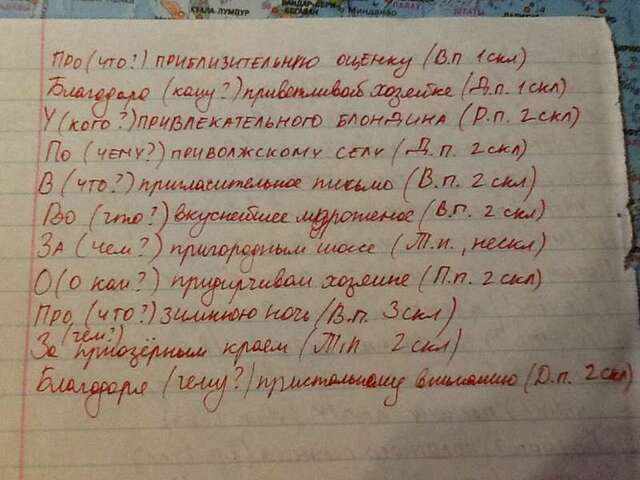 КУАЛА-ЛУМПУР
БАНДАР-СЕРИ-
БЕГАВАН
Минданао
ПАЛАУ
ШТАТЫ
ПАЛИКИР
Про (что?) приблизительную оценку (В.п 1 скл)
Благодаря (кому?) приветливой хозяйке (Д.п. 1 скл)
У (кого?) привлекательного блондина (Р.п. 2 скл)
По (чему?) приволжскому селу (Д.п. 2 скл)
В (что?) пригласительное письмо (В.п. 2 скл)
Во (что?) вкуснейшее мороженое (В.п. 2 скл)
За (чем?) пригородным шоссе (Т.п., нескл)
О (о ком?) придирчивом хозяине (П.п. 2 скл)
Про (что?) зимнюю ночь (В.п. 3 скл)
За (чем?) приозёрным краем (Т.п 2 скл)
Благодаря (чему?) пристальному вниманию (Д.п. 2 скл)